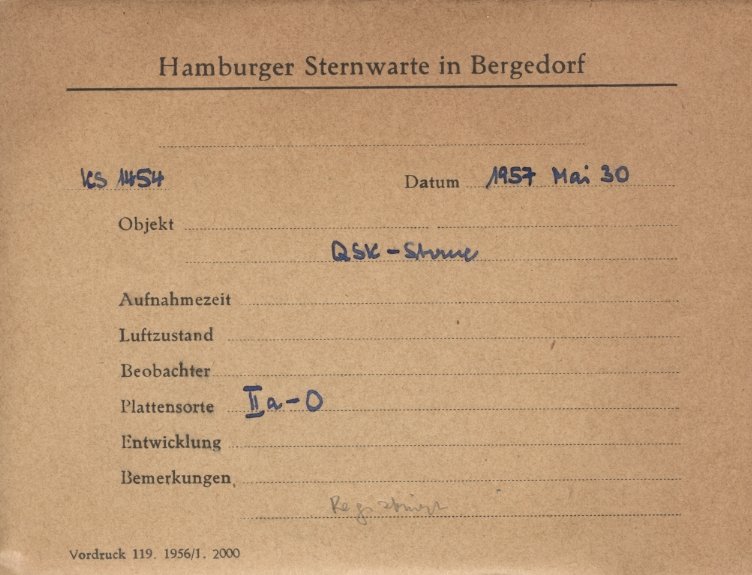 Hamburger Sternwarte in Bergedorf
KS 1454 Datum 1957 Mai 30
Objekt
QSK - Sterne
Aufnahmezeit
Luftzustand
Beobachter
Plattensorte IIa-O
Entwicklung
Bemerkungen
Vordruck 119. 1956/1. 2000